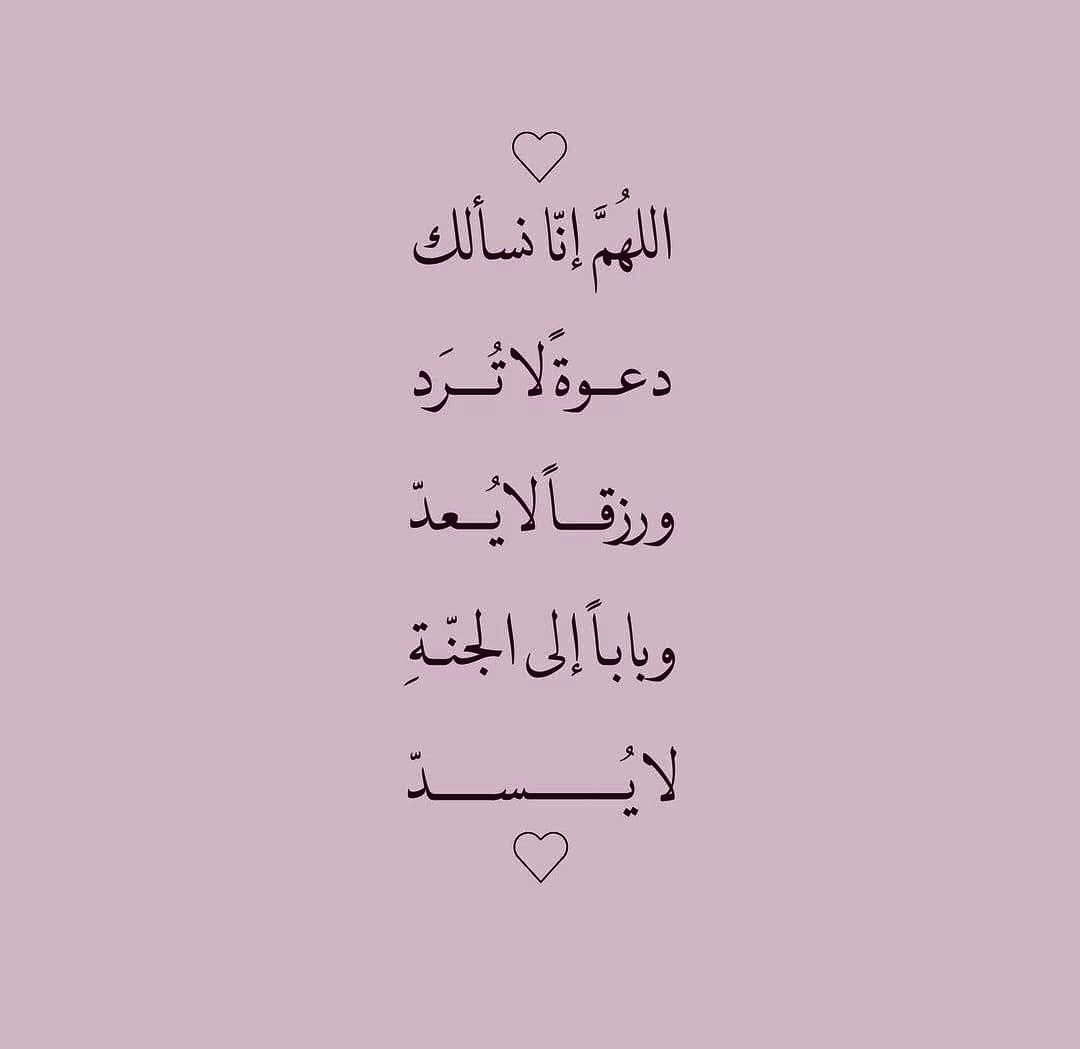 اللهُمَّ إنّا نسألك
دعـوةً لا تُـــرَد
ورزقـــاً لا يُـــعدّ
وباباً إلى الجنّـةِ
لا يُــــــســـــدّ